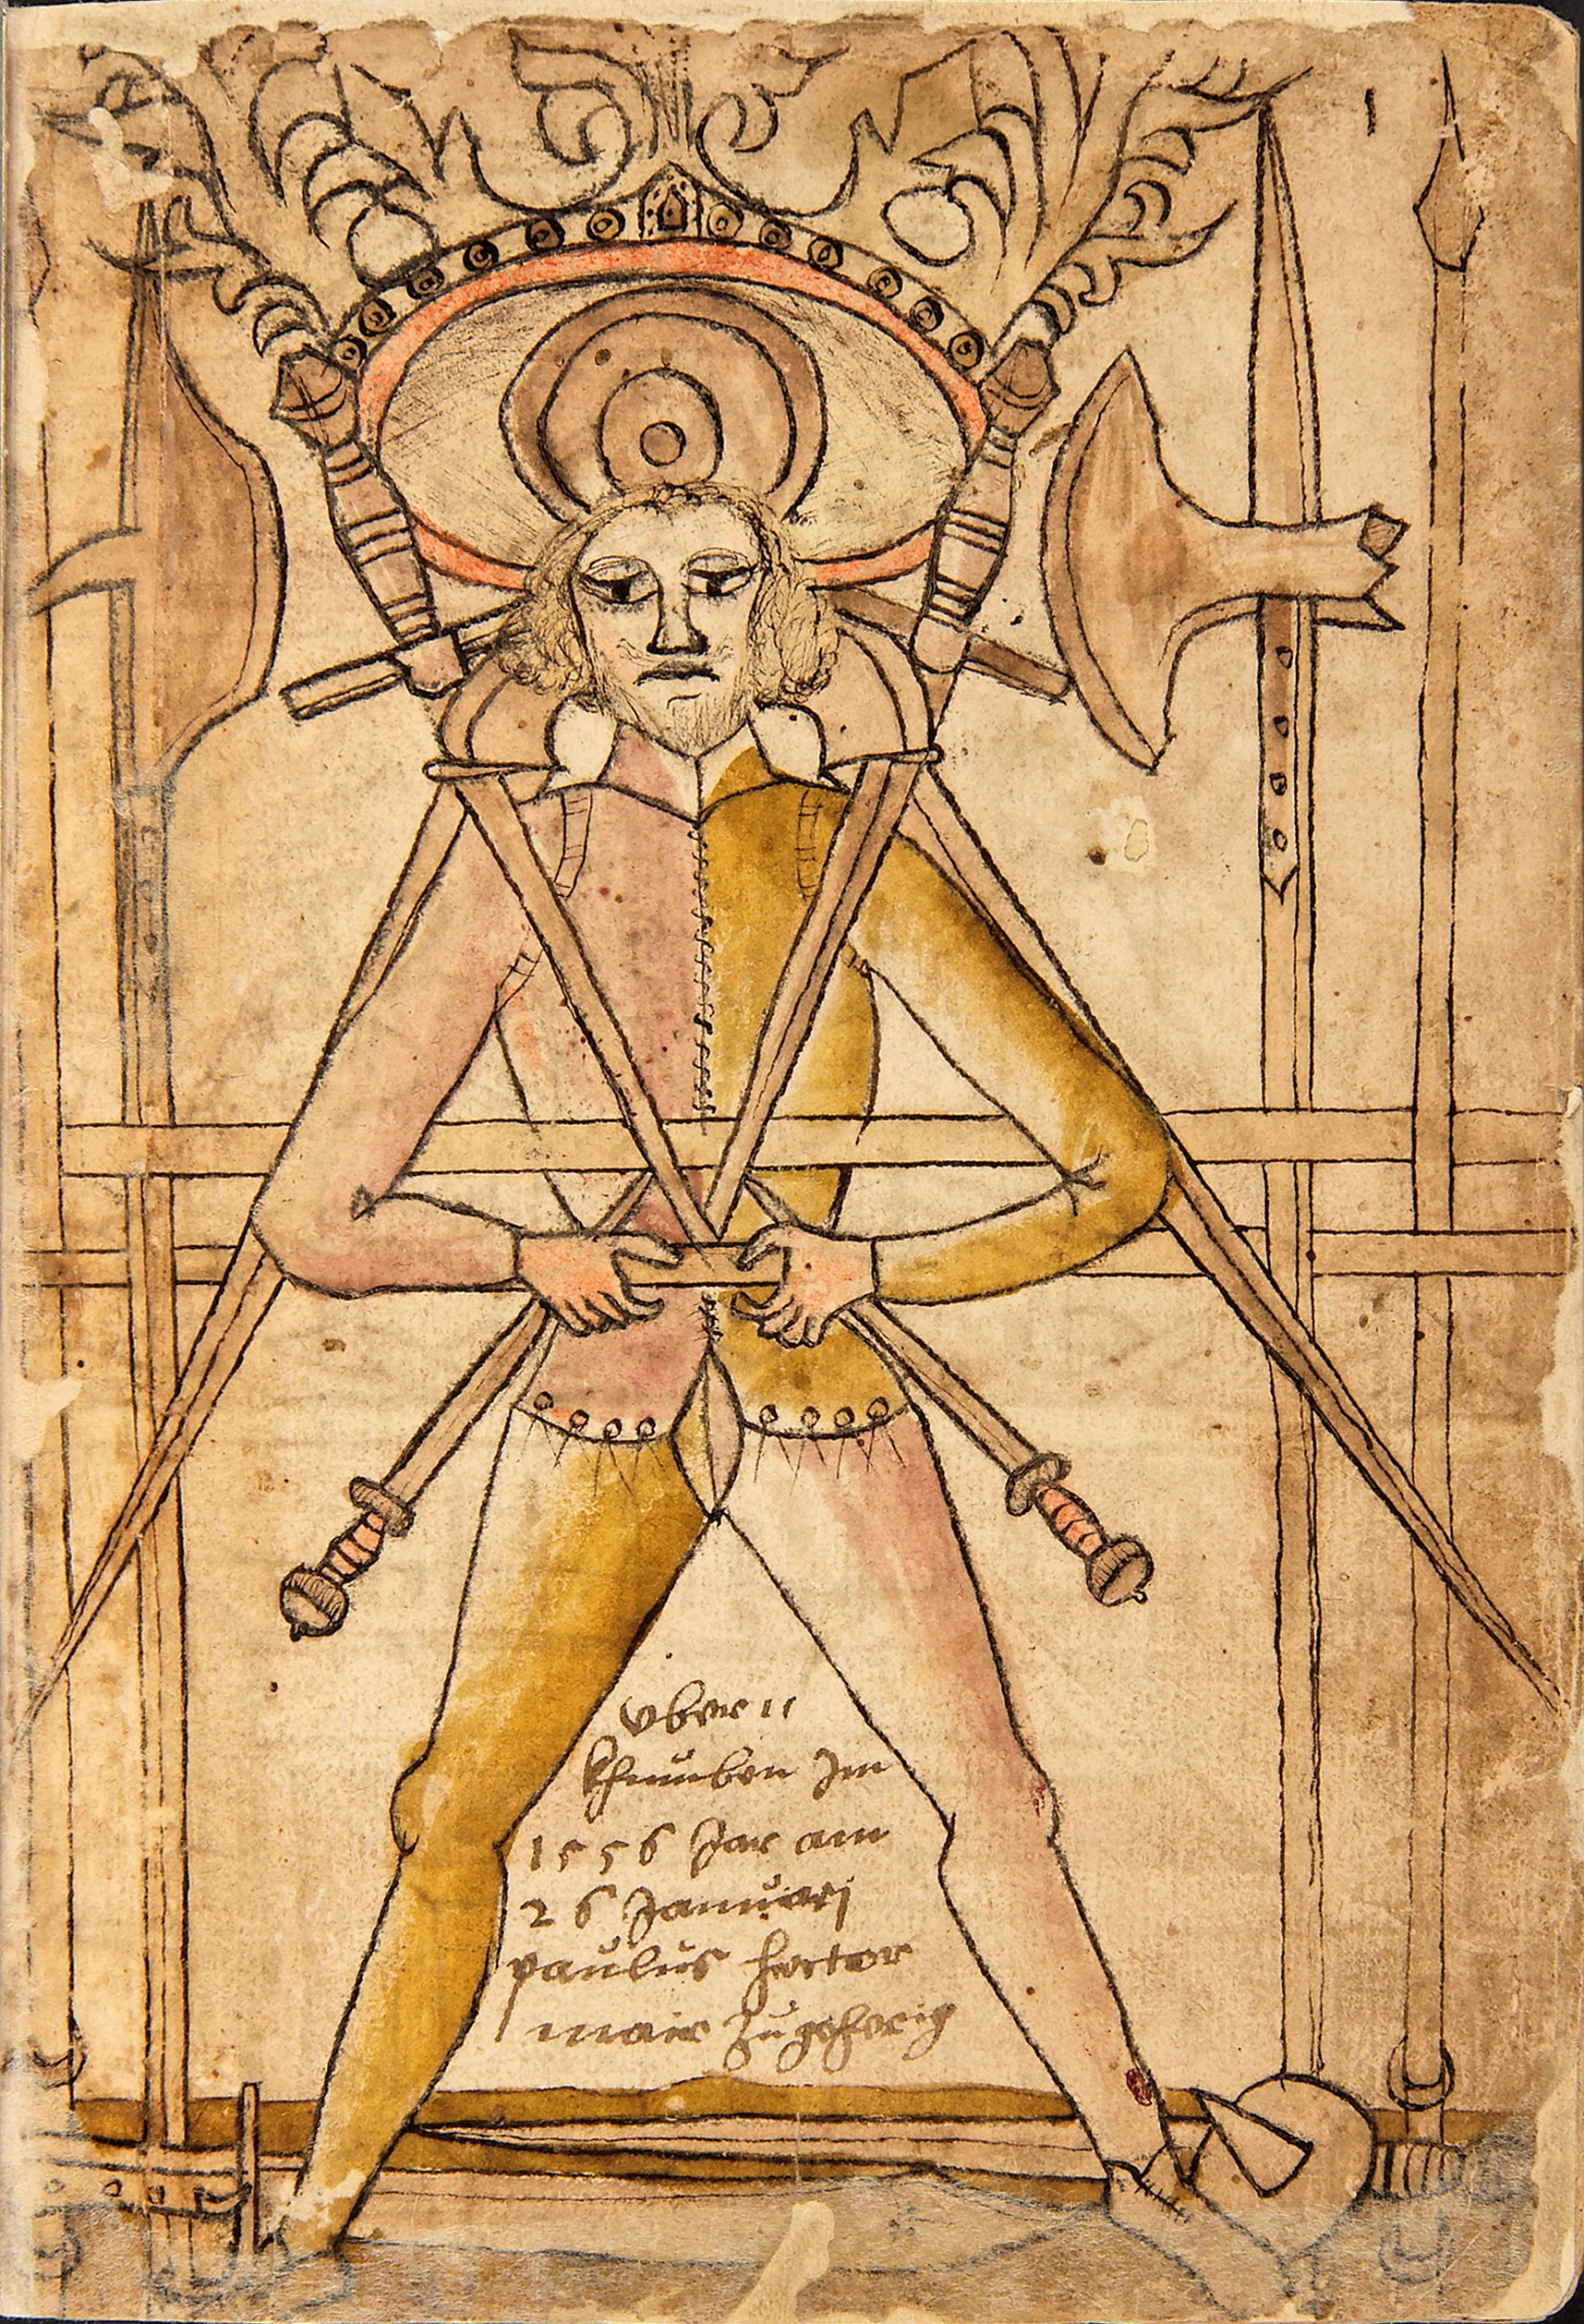 1
vber 11
khumben Im
1556 Jar am
26 Januarj
paulus hector
mair zu geherig